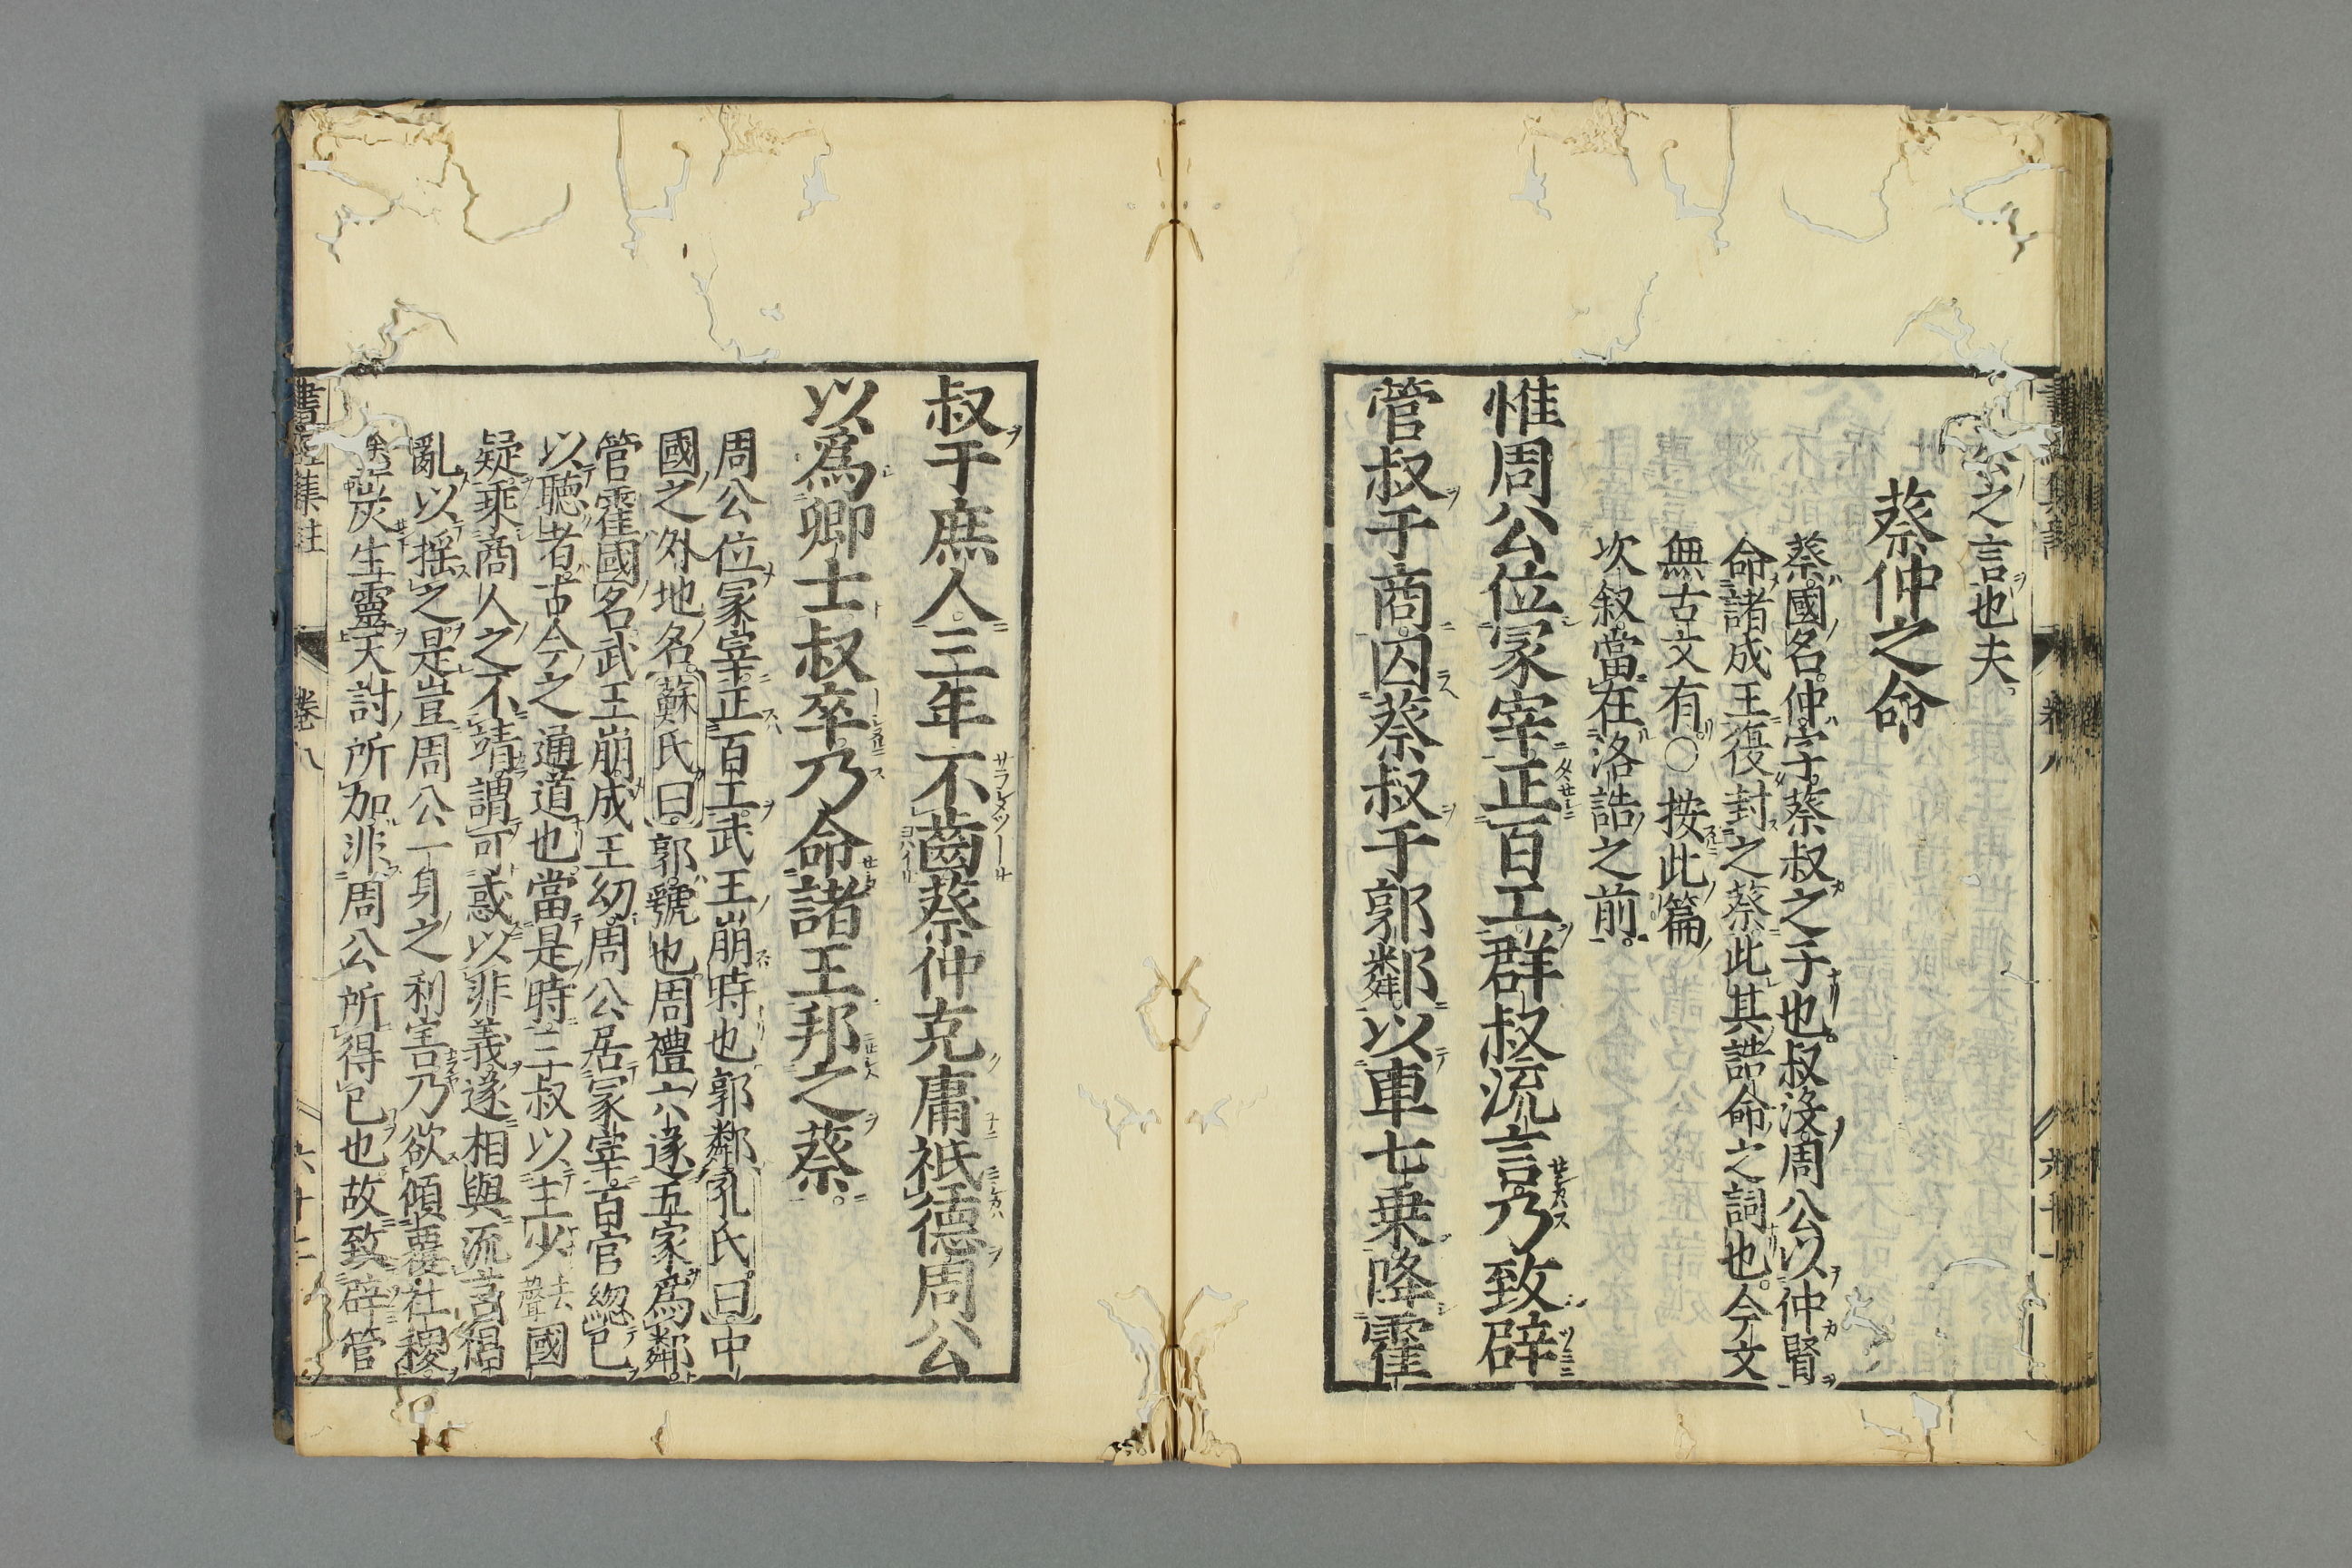 之言也夫
蔡仲之命
蔡國名仲字蔡叔之子也叔沒周公以仲賢
命諸成王復封之蔡此其誥命之詞也今文
無古文有〇按此篇
次叙當在洛誥之前
惟周公位冢宰正百工群叔流言乃致辟
管叔于商囚蔡叔于郭鄰以車七乗降霍
叔于庶人三年不齒蔡仲克庸祗德周公
以爲卿士叔卒乃命諸王邦之蔡
周公位冢宰正百工武王崩時也郭鄰孔氏曰中
國之外地名蘇氏曰郭虢也周禮六遂五家爲鄰
管霍國名武王崩成王幼周公居冢宰百官緫己
以聽者古今之通道也當是時三叔以主少去聲國
疑乘商人之不靖謂可惑以非義遂相與流言倡
亂以揺之是豈周公一身之利害乃欲傾覆社稷
炭生靈天討所加非周公所得已也故致辟管
書經集註 卷八 六十二